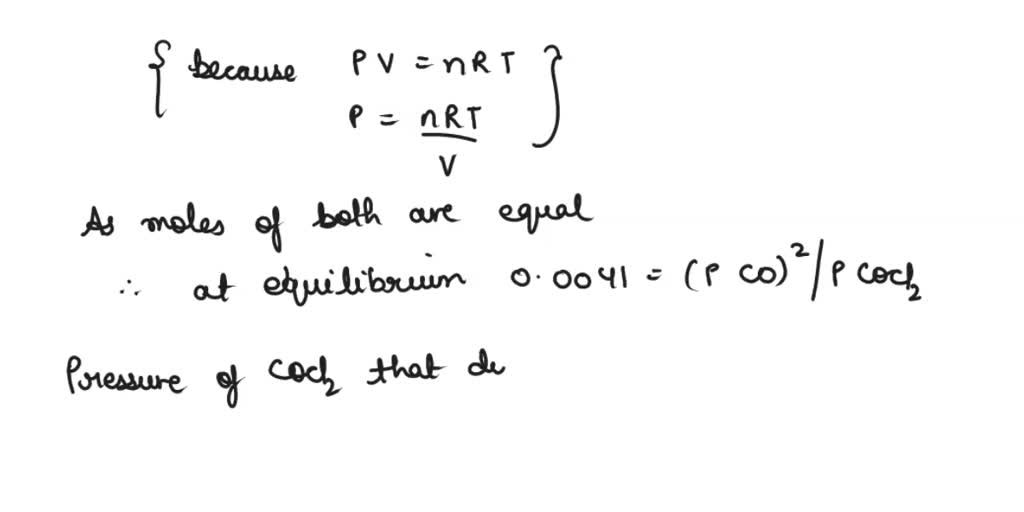 { because PV = nRT }
P = nRT / V
As moles of both are equal
∴ at equilibrium 0.0041 = (P CO)² / P COCl₂
Pressure of COCl₂ that de